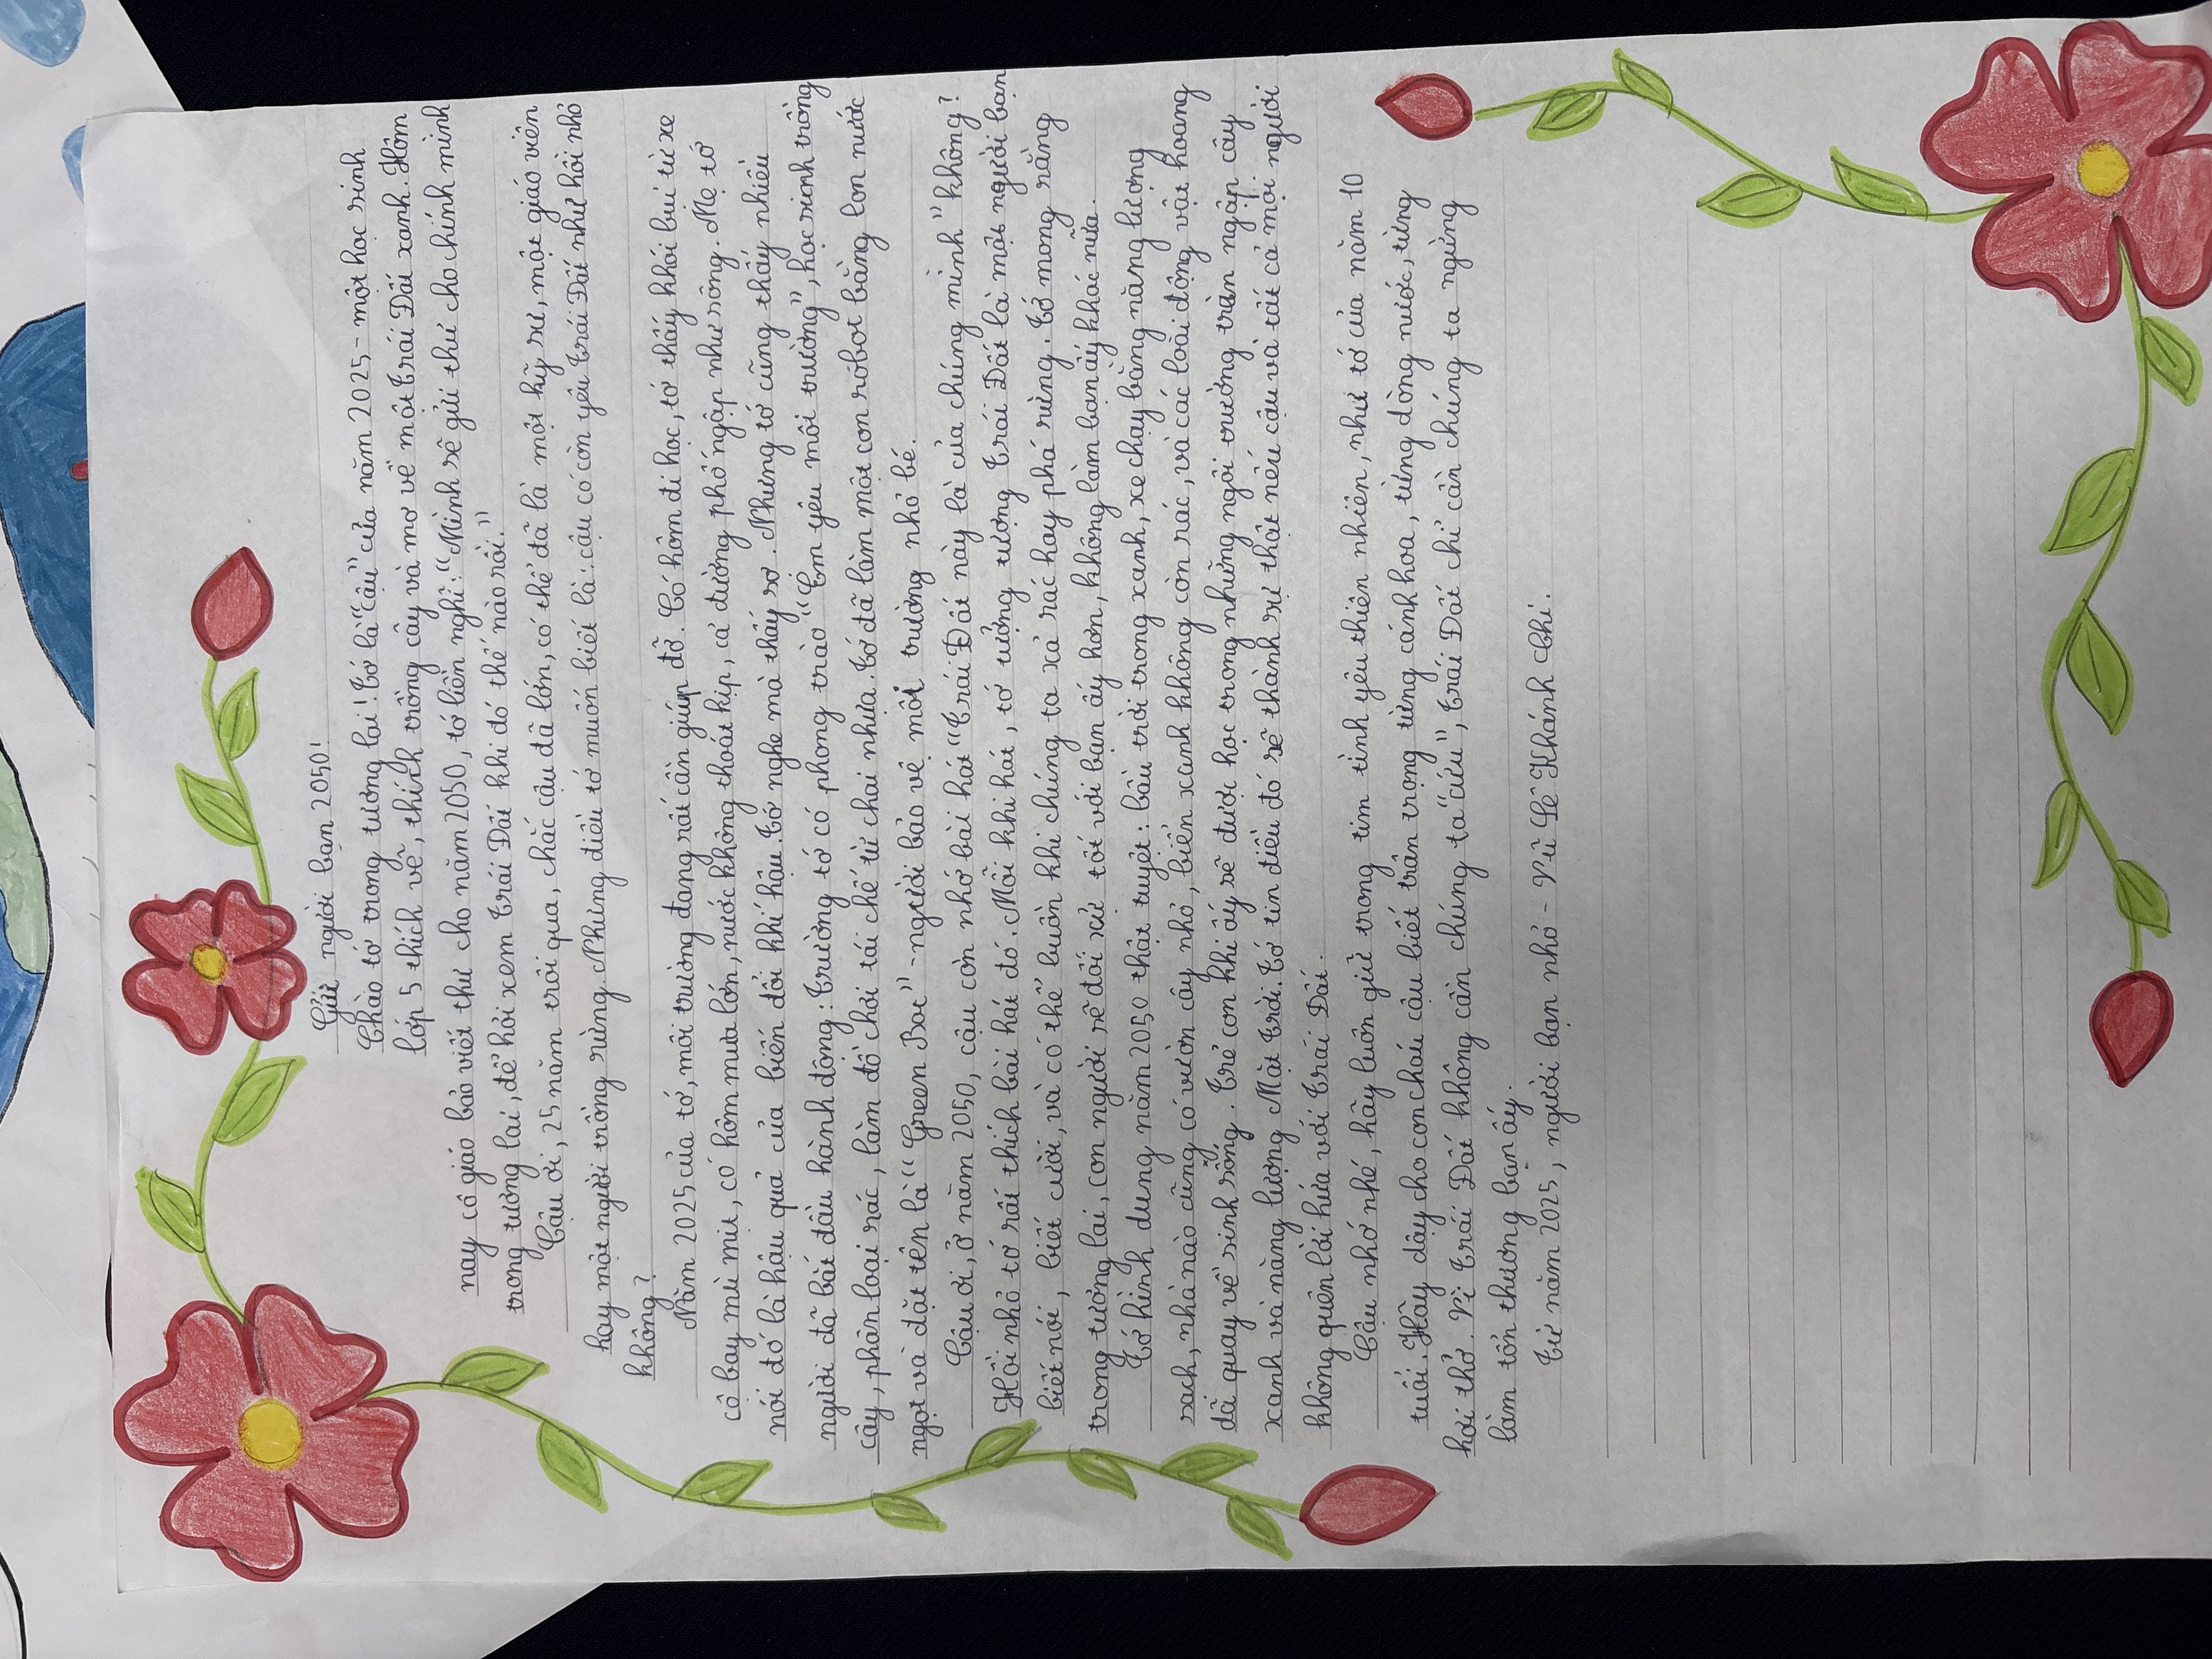 Gửi người bạn 2050!
Chào tớ trong tương lai! Tớ là "cậu" của năm 2025 - một học sinh
lớp 5 thích vẽ, thích trồng cây và mơ về một Trái Đất xanh. Hôm
nay cô giáo bảo viết thư cho năm 2050, tớ liền nghĩ: "Mình sẽ gửi thư cho chính mình
trong tương lai, để hỏi xem Trái Đất khi đó thế nào rồi."
Cậu ơi, 25 năm trôi qua, chắc cậu đã lớn, có thể đã là một kỹ sư, một giáo viên
hay một người trồng rừng. Nhưng điều tớ muốn biết là: cậu có còn yêu Trái Đất như hồi nhỏ
không?
Năm 2025 của tớ, môi trường đang rất cần giúp đỡ. Có hôm đi học, tớ thấy khói bụi từ xe
cộ bay mù mịt, có hôm mưa lớn, nước không thoát kịp, cả đường phố ngập như sông. Mẹ tớ
nói đó là hậu quả của biến đổi khí hậu. Tớ nghe mà thấy sợ. Nhưng tớ cũng thấy nhiều
người đã bắt đầu hành động: Trường tớ có phong trào "Em yêu môi trường", học sinh trồng
cây, phân loại rác, làm đồ chơi tái chế từ chai nhựa. Tớ đã làm một con robot bằng lon nước
ngọt và đặt tên là "Green Bot" - người bảo vệ môi trường nhỏ bé.
Cậu ơi, ở năm 2050, cậu còn nhớ bài hát "Trái Đất này là của chúng mình" không?
Hồi nhỏ tớ rất thích bài hát đó. Mỗi khi hát, tớ tưởng tượng Trái Đất là một người bạn
biết nói, biết cười, và có thể buồn khi chúng ta xả rác hay phá rừng. Tớ mong rằng
trong tương lai, con người sẽ đối xử tốt với bạn ấy hơn, không làm bạn ấy khóc nữa.
Tớ hình dung năm 2050 thật tuyệt: bầu trời trong xanh, xe chạy bằng năng lượng
sạch, nhà nào cũng có vườn cây nhỏ, biển xanh không còn rác, và các loài động vật hoang
dã quay về sinh sống. Trẻ con khi ấy sẽ được học trong những ngôi trường tràn ngập cây
xanh và năng lượng Mặt Trời. Tớ tin điều đó sẽ thành sự thật nếu cậu và tất cả mọi người
không quên lời hứa với Trái Đất.
Cậu nhớ nhé, hãy luôn giữ trong tim tình yêu thiên nhiên, như tớ của năm 10
tuổi. Hãy dậy cho con cháu cậu biết trân trọng từng cánh hoa, từng dòng nước, từng
hơi thở. Vì Trái Đất không cần chúng ta "cứu", Trái Đất chỉ cần chúng ta ngừng
làm tổn thương bạn ấy.
Từ năm 2025, người bạn nhỏ - Vũ Lê Khánh Chi.